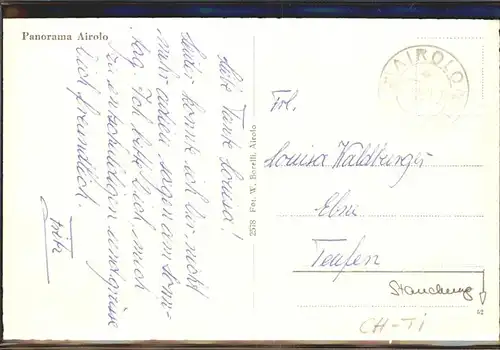 Panorama Airolo
Liebe Tante Louisa!
Leider konnte ich Dir nicht
mehr adieu sagen am Sonn-
tag. Ich bitte Dich mich
zu entschuldigen und grüsse
Dich freundlich.
Fritz
2518 Fot. W. Borelli, Airolo
AIROLO
Frl.
Louisa Waldburger
Ebni
Teufen
Stauchung
52
CH-TI